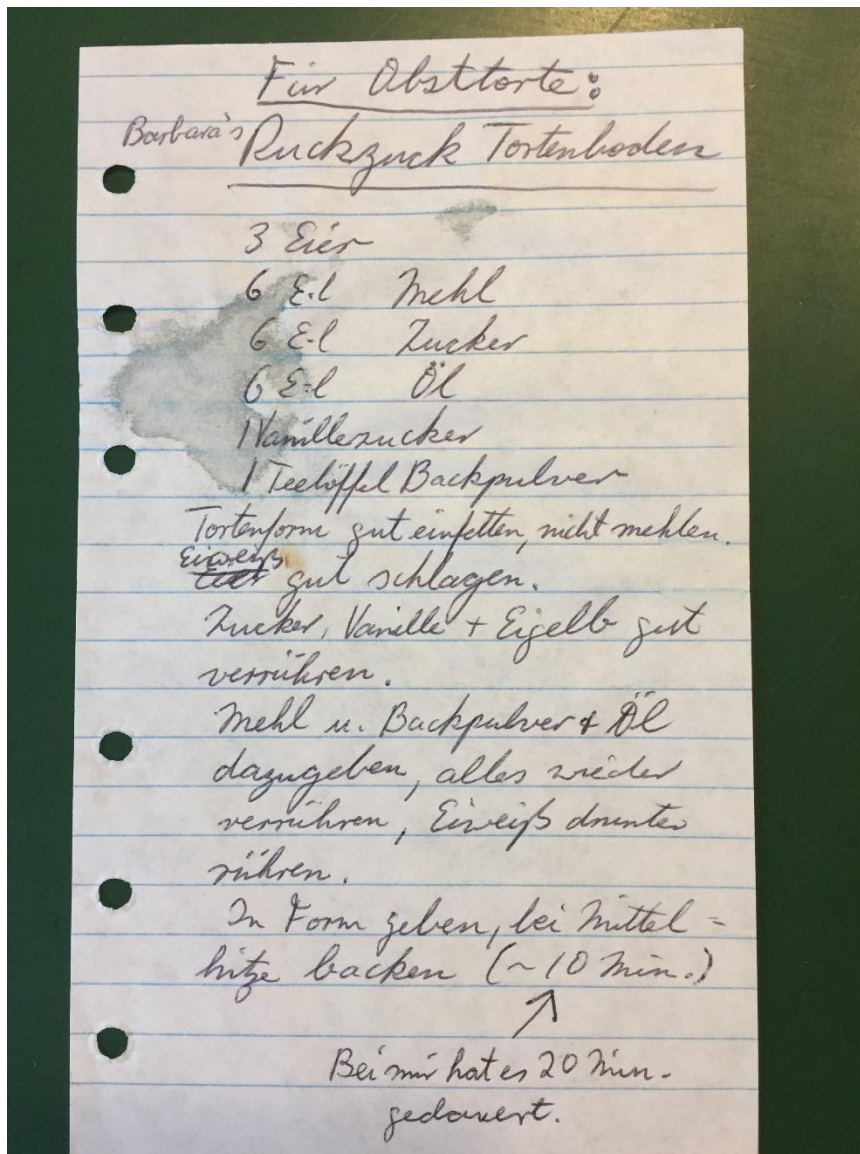 Für Obsttorte:
Barbara's Ruckzuck Tortenboden
3 Eier
6 E-l Mehl
6 E-l Zucker
6 E-l Öl
1 Vanillezucker
1 Teelöffel Backpulver
Tortenform gut einfetten, nicht mehlen.
Eiweiß
Eier gut schlagen.
Zucker, Vanille + Eigelb gut
verrühren.
Mehl u. Backpulver & Öl
dazugeben, alles wieder
verrühren, Eiweiß drunter
rühren.
In Form geben, bei Mittel=
hitze backen (~10 Min.)
Bei mir hat es 20 Min.
gedauert.